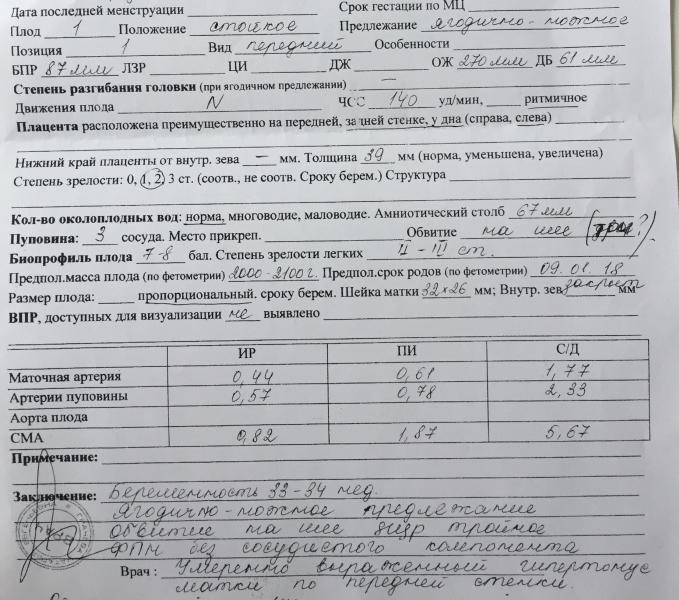 Дата последней менструации Срок гестации по МЦ
Плод 1 Положение стойкое Предлежание ягодично-ножное
Позиция 1 Вид передний Особенности
БПР 87мм ЛЗР ЦИ ДЖ ОЖ 270мм ДБ 61 мм
Степень разгибания головки (при ягодичном предлежании) —
Движения плода N ЧСС 140 уд/мин, ритмичное
Плацента расположена преимущественно на передней, задней стенке, у дна (справа, слева)
Нижний край плаценты от внутр. зева — мм. Толщина 39 мм (норма, уменьшена, увеличена)
Степень зрелости: 0, 1, 2, 3 ст. (соотв., не соотв. Сроку берем.) Структура
Кол-во околоплодных вод: норма, многоводие, маловодие. Амниотический столб 67мм
Пуповина: 3 сосуда. Место прикреп. Обвитие на шее
Биопрофиль плода 7-8 бал. Степень зрелости легких II - III ст.
Предпол.масса плода (по фетометрии) 2000-2100г. Предпол.срок родов (по фетометрии) 09.01.18
Размер плода: пропорциональный. сроку берем. Шейка матки 32×26 мм; Внутр. зев закрыт мм
ВПР, доступных для визуализации не выявлено
ИР ПИ С/Д
Маточная артерия 0,44 0,61 1,77
Артерии пуповины 0,57 0,78 2,33
Аорта плода
СМА 0,82 1,87 5,67
Примечание:
Заключение: Беременность 33-34 нед.
Ягодично-ножное предлежание
Обвитие на шее тройное
ФПН без сосудистого компонента
Врач : Умеренно выраженный гипертонус
матки по передней стенки.